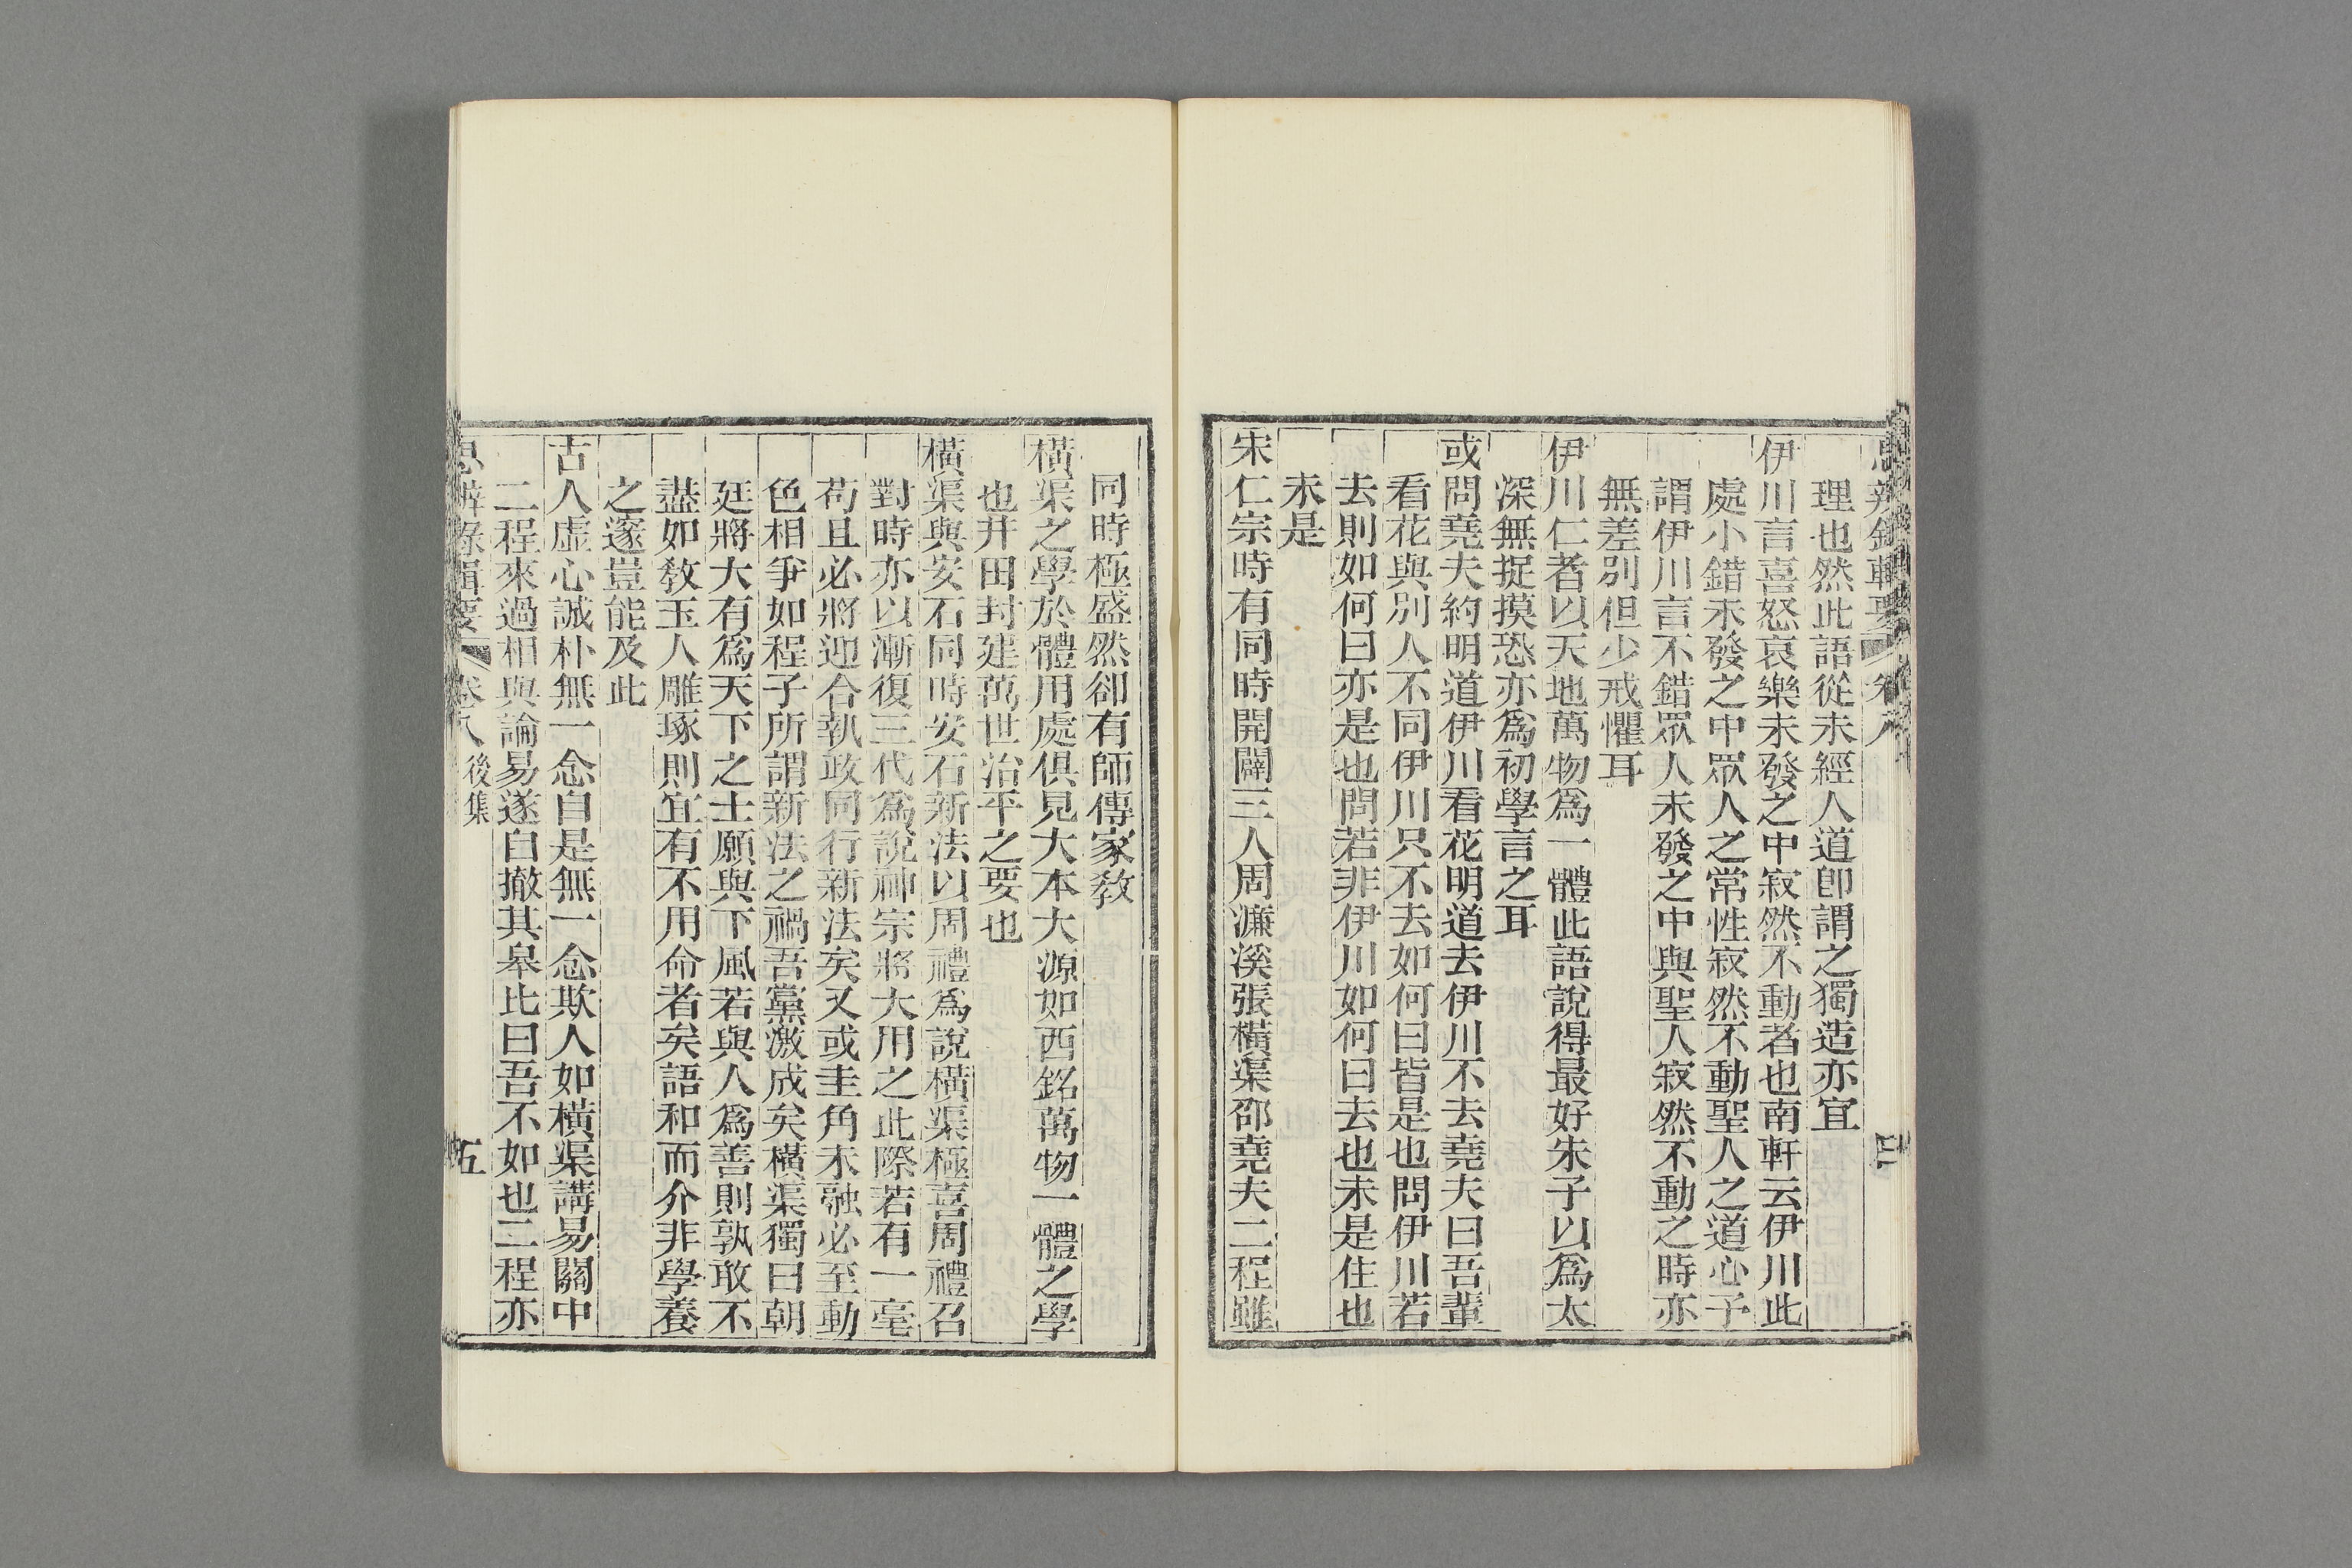 理也然此語從未經人道卽謂之獨造亦宜
伊川言喜怒哀樂未發之中寂然不動者也南軒云伊川此
處小錯未發之中眾人之常性寂然不動聖人之道心予
謂伊川言不錯眾人未發之中與聖人寂然不動之時亦
無差別但少戒懼耳
伊川仁者以天地萬物爲一體此語說得最好朱子以爲太
深無捉摸恐亦爲初學言之耳
或問堯夫約明道伊川看花明道去伊川不去堯夫曰吾輩
看花與別人不同伊川只不去如何曰皆是也問伊川若
去則如何曰亦是也問若非伊川如何曰去也未是住也
未是
宋仁宗時有同時開闢三人周濂溪張橫渠邵堯夫二程雖
同時極盛然卻有師傳家敎
橫渠之學於體用處俱見大本大源如西銘萬物一體之學
也井田封建萬世治平之要也
橫渠與安石同時安石新法以周禮爲說橫渠極喜周禮召
對時亦以漸復三代爲說神宗將大用之此際若有一毫
苟且必將迎合執政同行新法矣又或圭角未融必至動
色相爭如程子所謂新法之禍吾黨激成矣橫渠獨曰朝
廷將大有爲天下之士願與下風若與人爲善則孰敢不
盡如敎玉人雕琢則宜有不用命者矣語和而介非學養
之邃豈能及此
古人虛心誠朴無一念自是無一念欺人如橫渠講易關中
二程來過相與論易遂自撤其皋比曰吾不如也二程亦
思辨錄輯要 卷八 後集 五